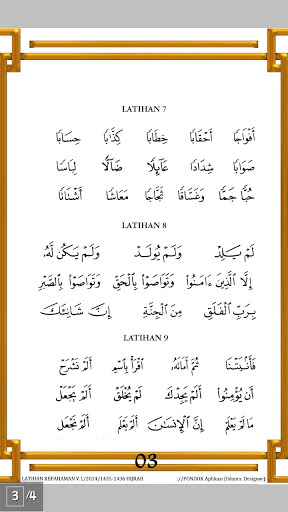 LATIHAN 7
أَفْوَاجًا أَحْقَابًا خِطَابًا كِذَّابًا حِسَابًا
صَوَابًا شِدَادًا عَآئِلًا ضَآلًّا لِبَاسًا
حُبًّا جَمًّا وَغَسَّاقًا ثَجَّاجًا مَعَاشًا أَشْتَاتًا
LATIHAN 8
لَمْ يَلِدْ وَلَمْ يُولَدْ وَلَمْ يَكُن لَّهُۥ
إِلَّا ٱلَّذِينَ ءَامَنُوا۟ وَتَوَاصَوْا۟ بِٱلْحَقِّ وَتَوَاصَوْا۟ بِٱلصَّبْرِ
بِرَبِّ ٱلْفَلَقِ مِنَ ٱلْجِنَّةِ إِنَّ شَانِئَكَ
LATIHAN 9
فَأَنۢبَتْنَا ثُمَّ أَمَاتَهُۥ ٱقْرَأْ بِٱسْمِ أَلَمْ نَشْرَحْ
أَن يُؤْمِنُوا۟ أَلَمْ يَجِدْكَ لَمْ يُخْلَقْ أَلَمْ يَجْعَلْ
مَا لَمْ يَعْلَمْ إِنَّ ٱلْإِنسَٰنَ أَلَمْ يَعْلَم أَلَمْ نَجْعَل
03
LATIHAN KEFAHAMAN V.1/2014/1435-1436 HIJRAH ://PONDOK Aplikasi (Islamic Designer)
3/4